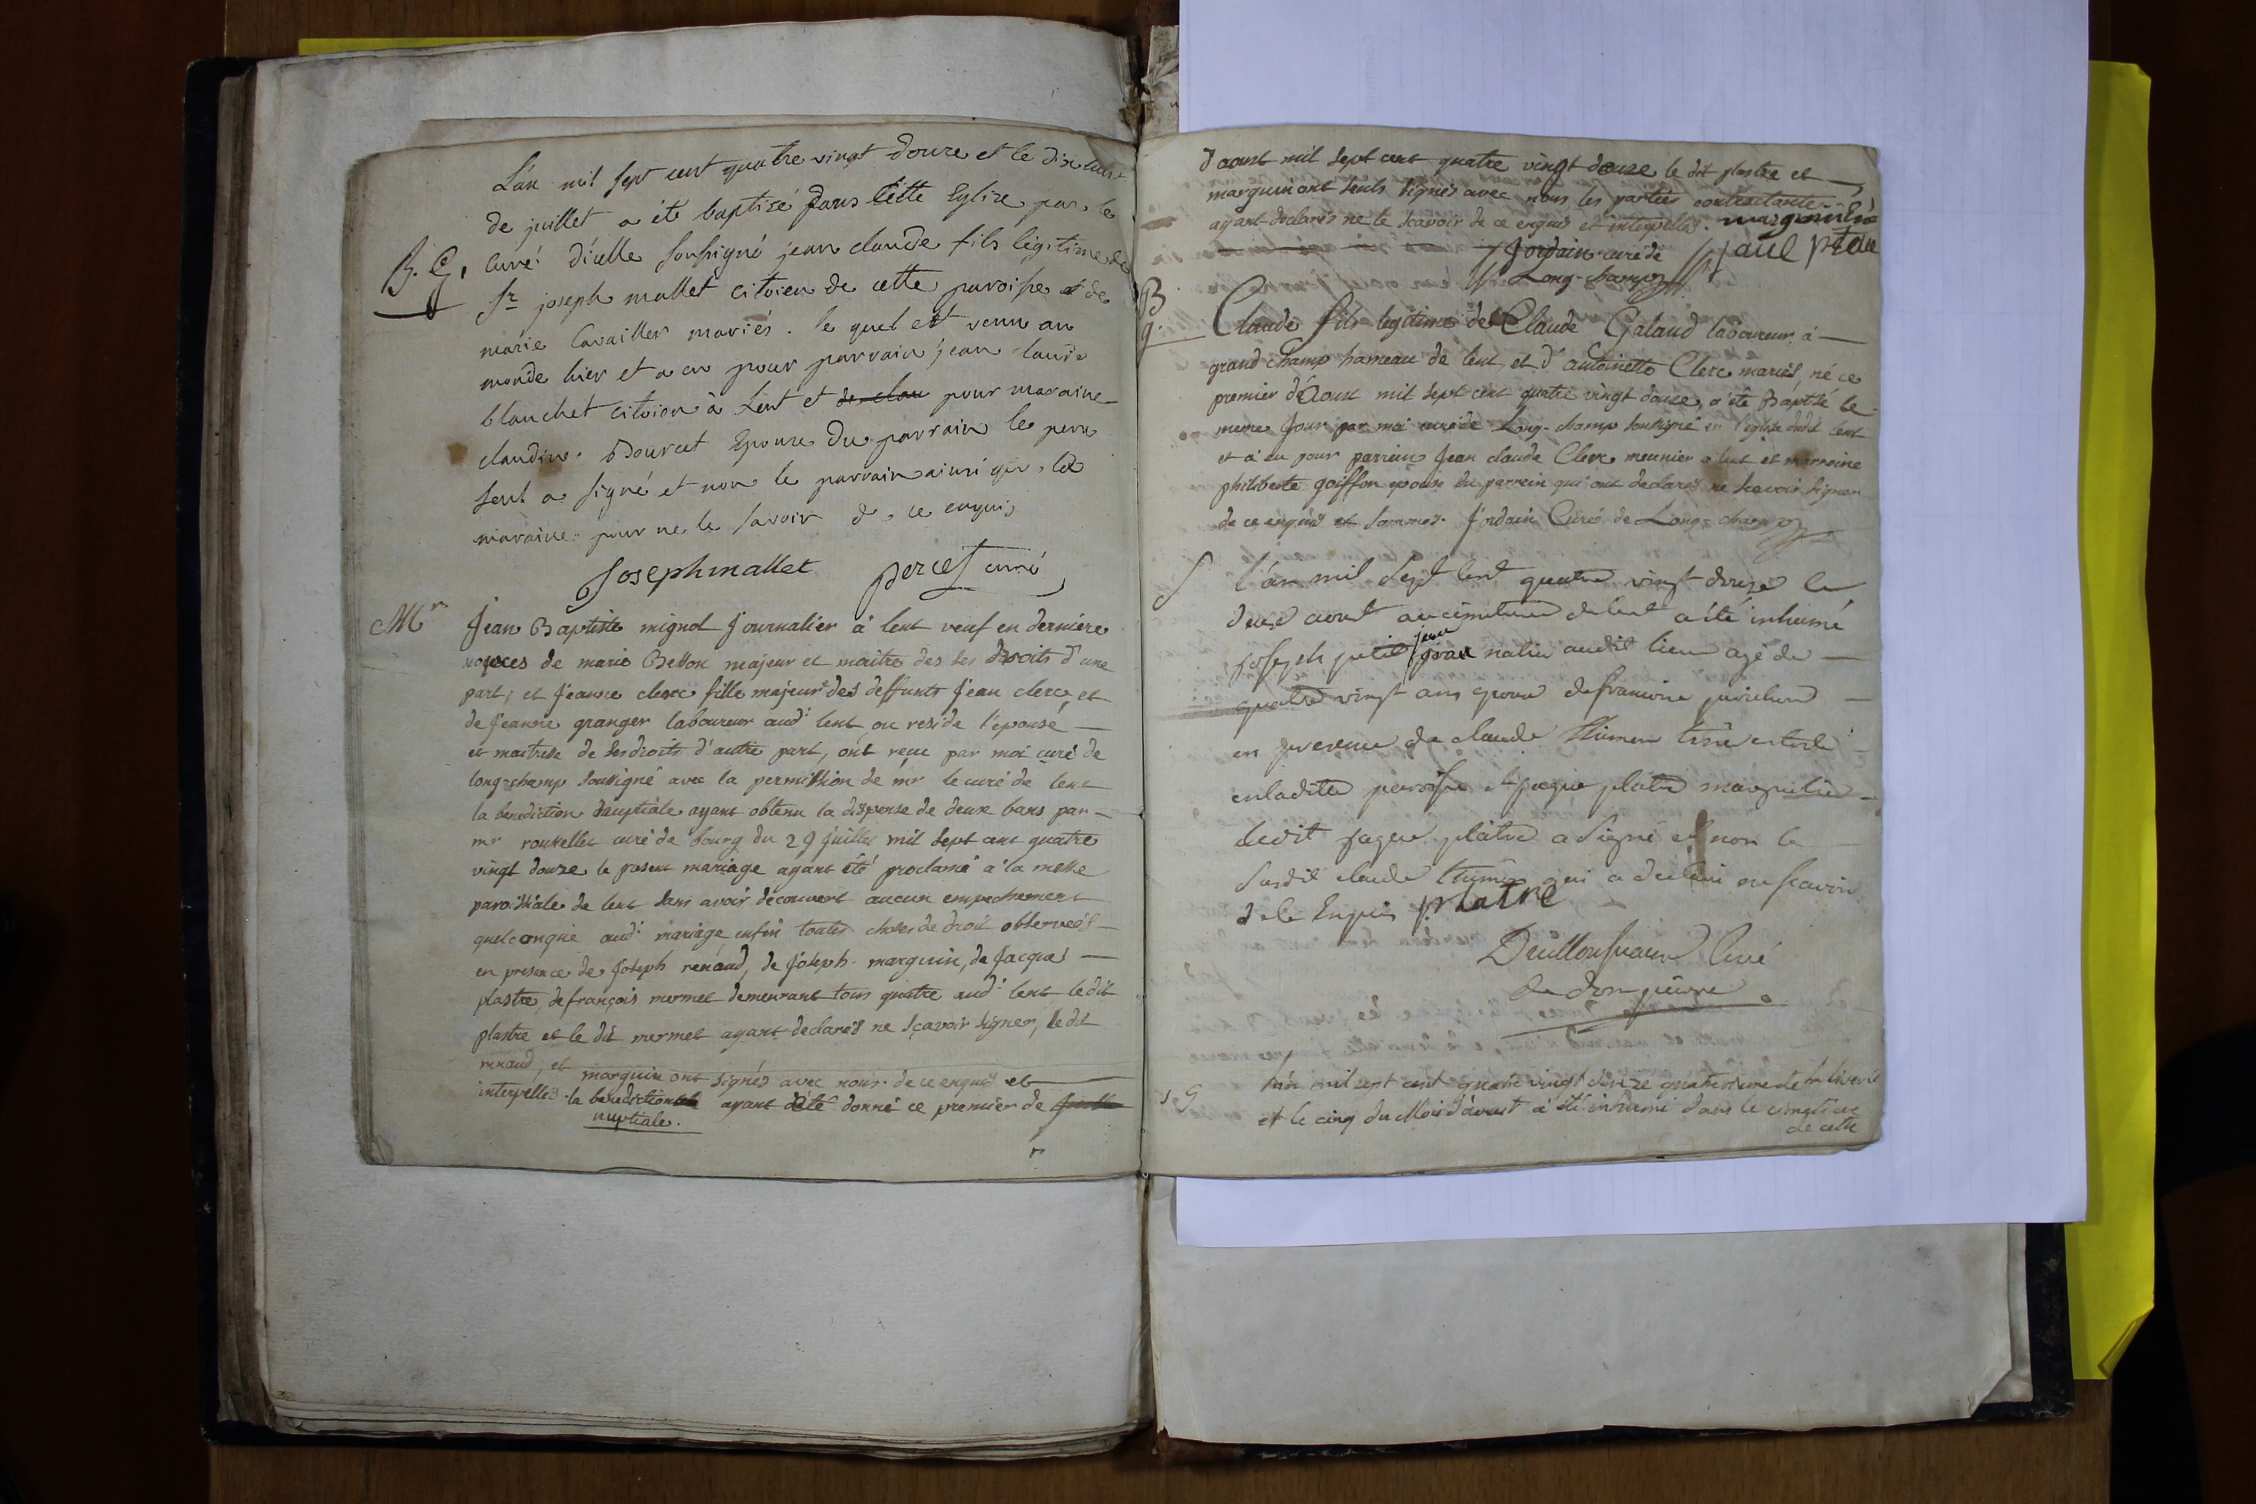 L'an mil sept cent quatre vingt douze et le dix huit
de juillet a été baptisé dans cette Eglise par le
B. G. curé d'icelle soussigné jean claude fils légitime de
Sr joseph mallet citoien de cette paroisse et de
marie Cavailler mariés. le quel est venu au
monde hier et a eu pour parrain jean claude
blanchet citoien à Lent et pour maraine
claudine Bourcet Epouse du parrain le pere
seul a signé et non le parrain ainsi que la
maraine pour ne le savoir de ce enquis
Joseph mallet percet curé
Mr Jean Baptiste mignot Journalier à lent veuf en derniére
nopces de marie Bellon majeur et maitre des ses droits d'une
part; et Jeanne clerc fille majeure des deffunts Jean clerc, et
de Jeanne granger laboureur aud: lent, ou reside l'epouse
et maitresse de ses droits d'autre part, ont reçu par moi curé de
long-champ soussigné avec la permission de mr le curé de lent
la benediction nuptiale ayant obtenu la dispense de deux bans par
mr rousselet curé de bourg du 29 juillet mil sept cent quatre
vingt douze le present mariage ayant été proclamé a la messe
paroissiale de lent sans avoir découvert aucun empechement
quelconque aud: mariage enfin toutes choses de droit observées
en presence de Joseph renaud, de joseph marguin, de Jacques
plastre, de françois mermet demeurant tous quatre aud: lent le dit
plastre et le dit mermet ayant declarés ne sçavoir signer, le dit
renaud, et marguin ont signés avec nous de ce enquis et
interpellés. la benediction ayant été donné ce premier de
nuptiale.
d'aoust mil sept cent quatre vingt douze le dit plastre et
marguin ont seuls signés avec nous les parties contractantes
ayant declarés ne le scavoir de ce enquis et interpellés. marguin
Jordain curé de paul
Long-champ
B
g. Claude fils legitime de Claude Galand laboureur à
grand champ hameau de lent, et d'antoinette Clerc mariés, né ce
premier d'Aoust mil sept cent quatre vingt douze, a été Baptisé le
meme Jour par moi curé de Long-champ soussigné en l'eglise dudit lent
et a eu pour parrein Jean claude Clerc meunier a lent et marreine
philiberte goiffon epouse du parrein qui ont declarés ne scavoir signer
de ce enquis et sommés. Jordain Curé de Long-champ
S l'an mil sept cent quatre vingt douze le
deux aout au cimetiere de lent a été inhumé
jean
joseph petit natif audit lieu agé de
quatre vingt ans epoux de francoise
en presence de claude
en ladite paroisse et jaque platre marguilier
ledit jaque platre a signé et non le
susdit claude qui a declaré ne scavoir
de ce Enquis platre
curé
de dompierre
S G l'an mil sept cent quatre vingt douze quatrieme de la liberté
et le cinq du Mois d'avust a été inhumé dans le cimetiere
de cette